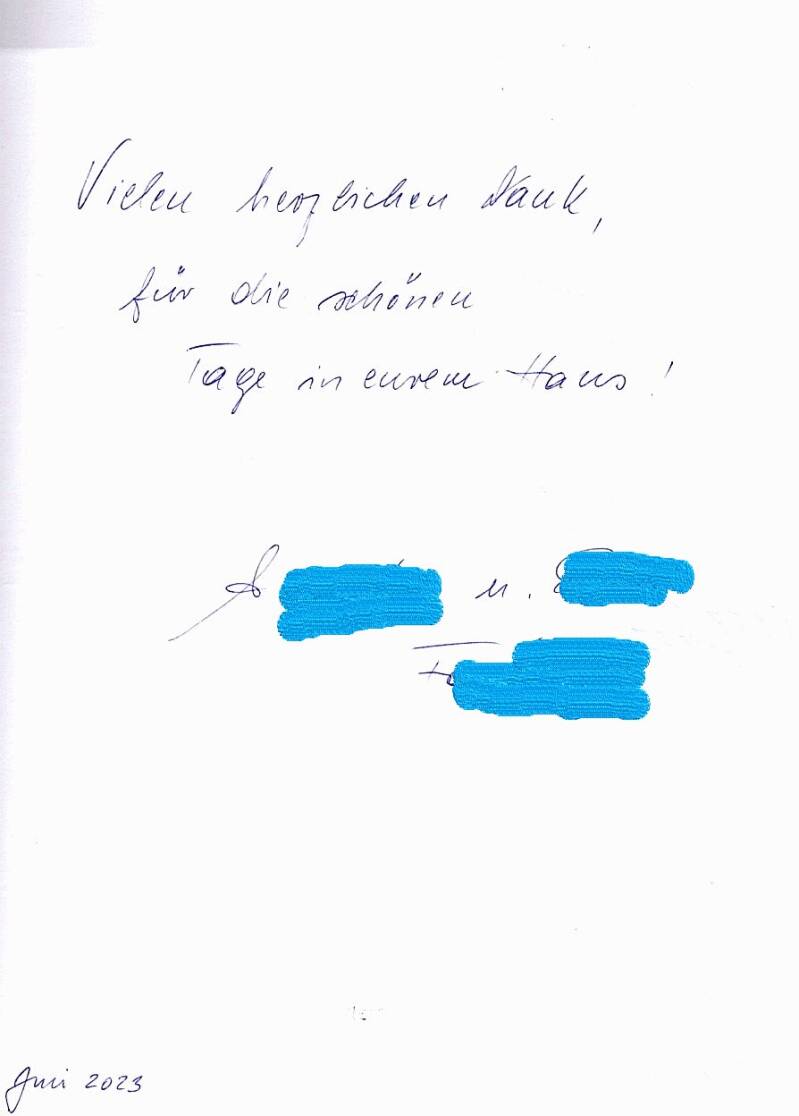 Vielen herzlichen Dank,
für die schönen
Tage in eurem Haus!
u.
Juni 2023